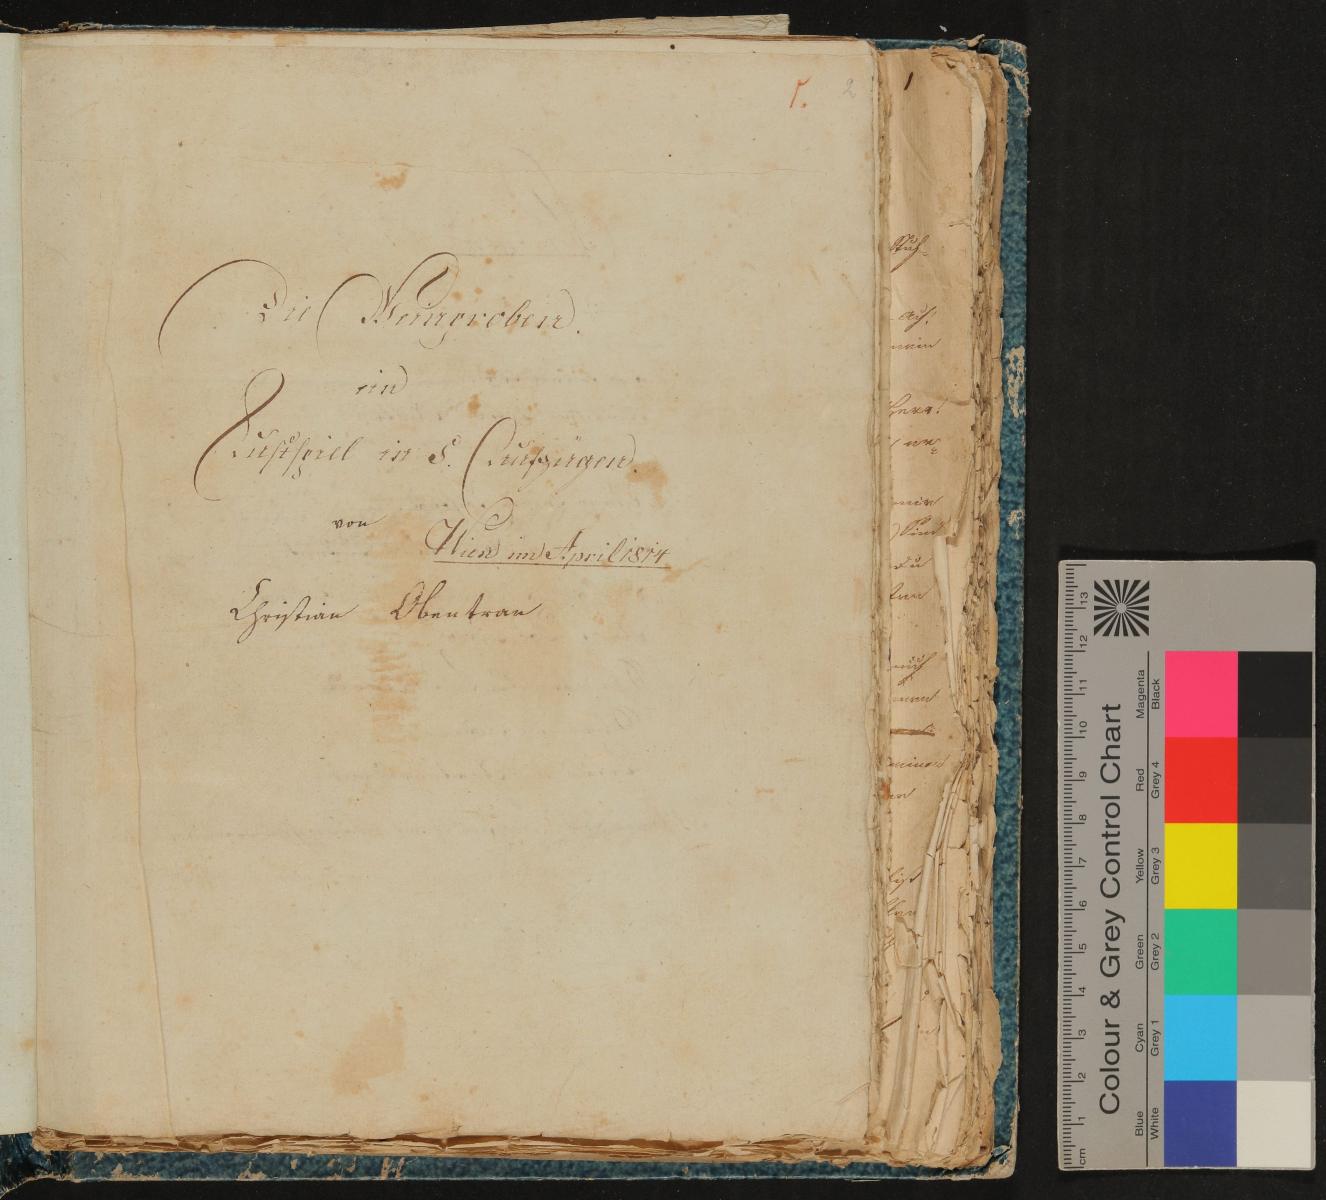 1. 2
Die Weinproben.
ein
Lustspiel in 5. Aufzügen.
von
Wien im April 1814
Christian Obentrau
1
auf.
mein
Herr!
mir
du
auch
cm 1 2 3 4 5 6 7 8 9 10 11 12 13
Colour & Grey Control Chart
Blue Cyan Green Yellow Red Magenta
White Grey 1 Grey 2 Grey 3 Grey 4 Black